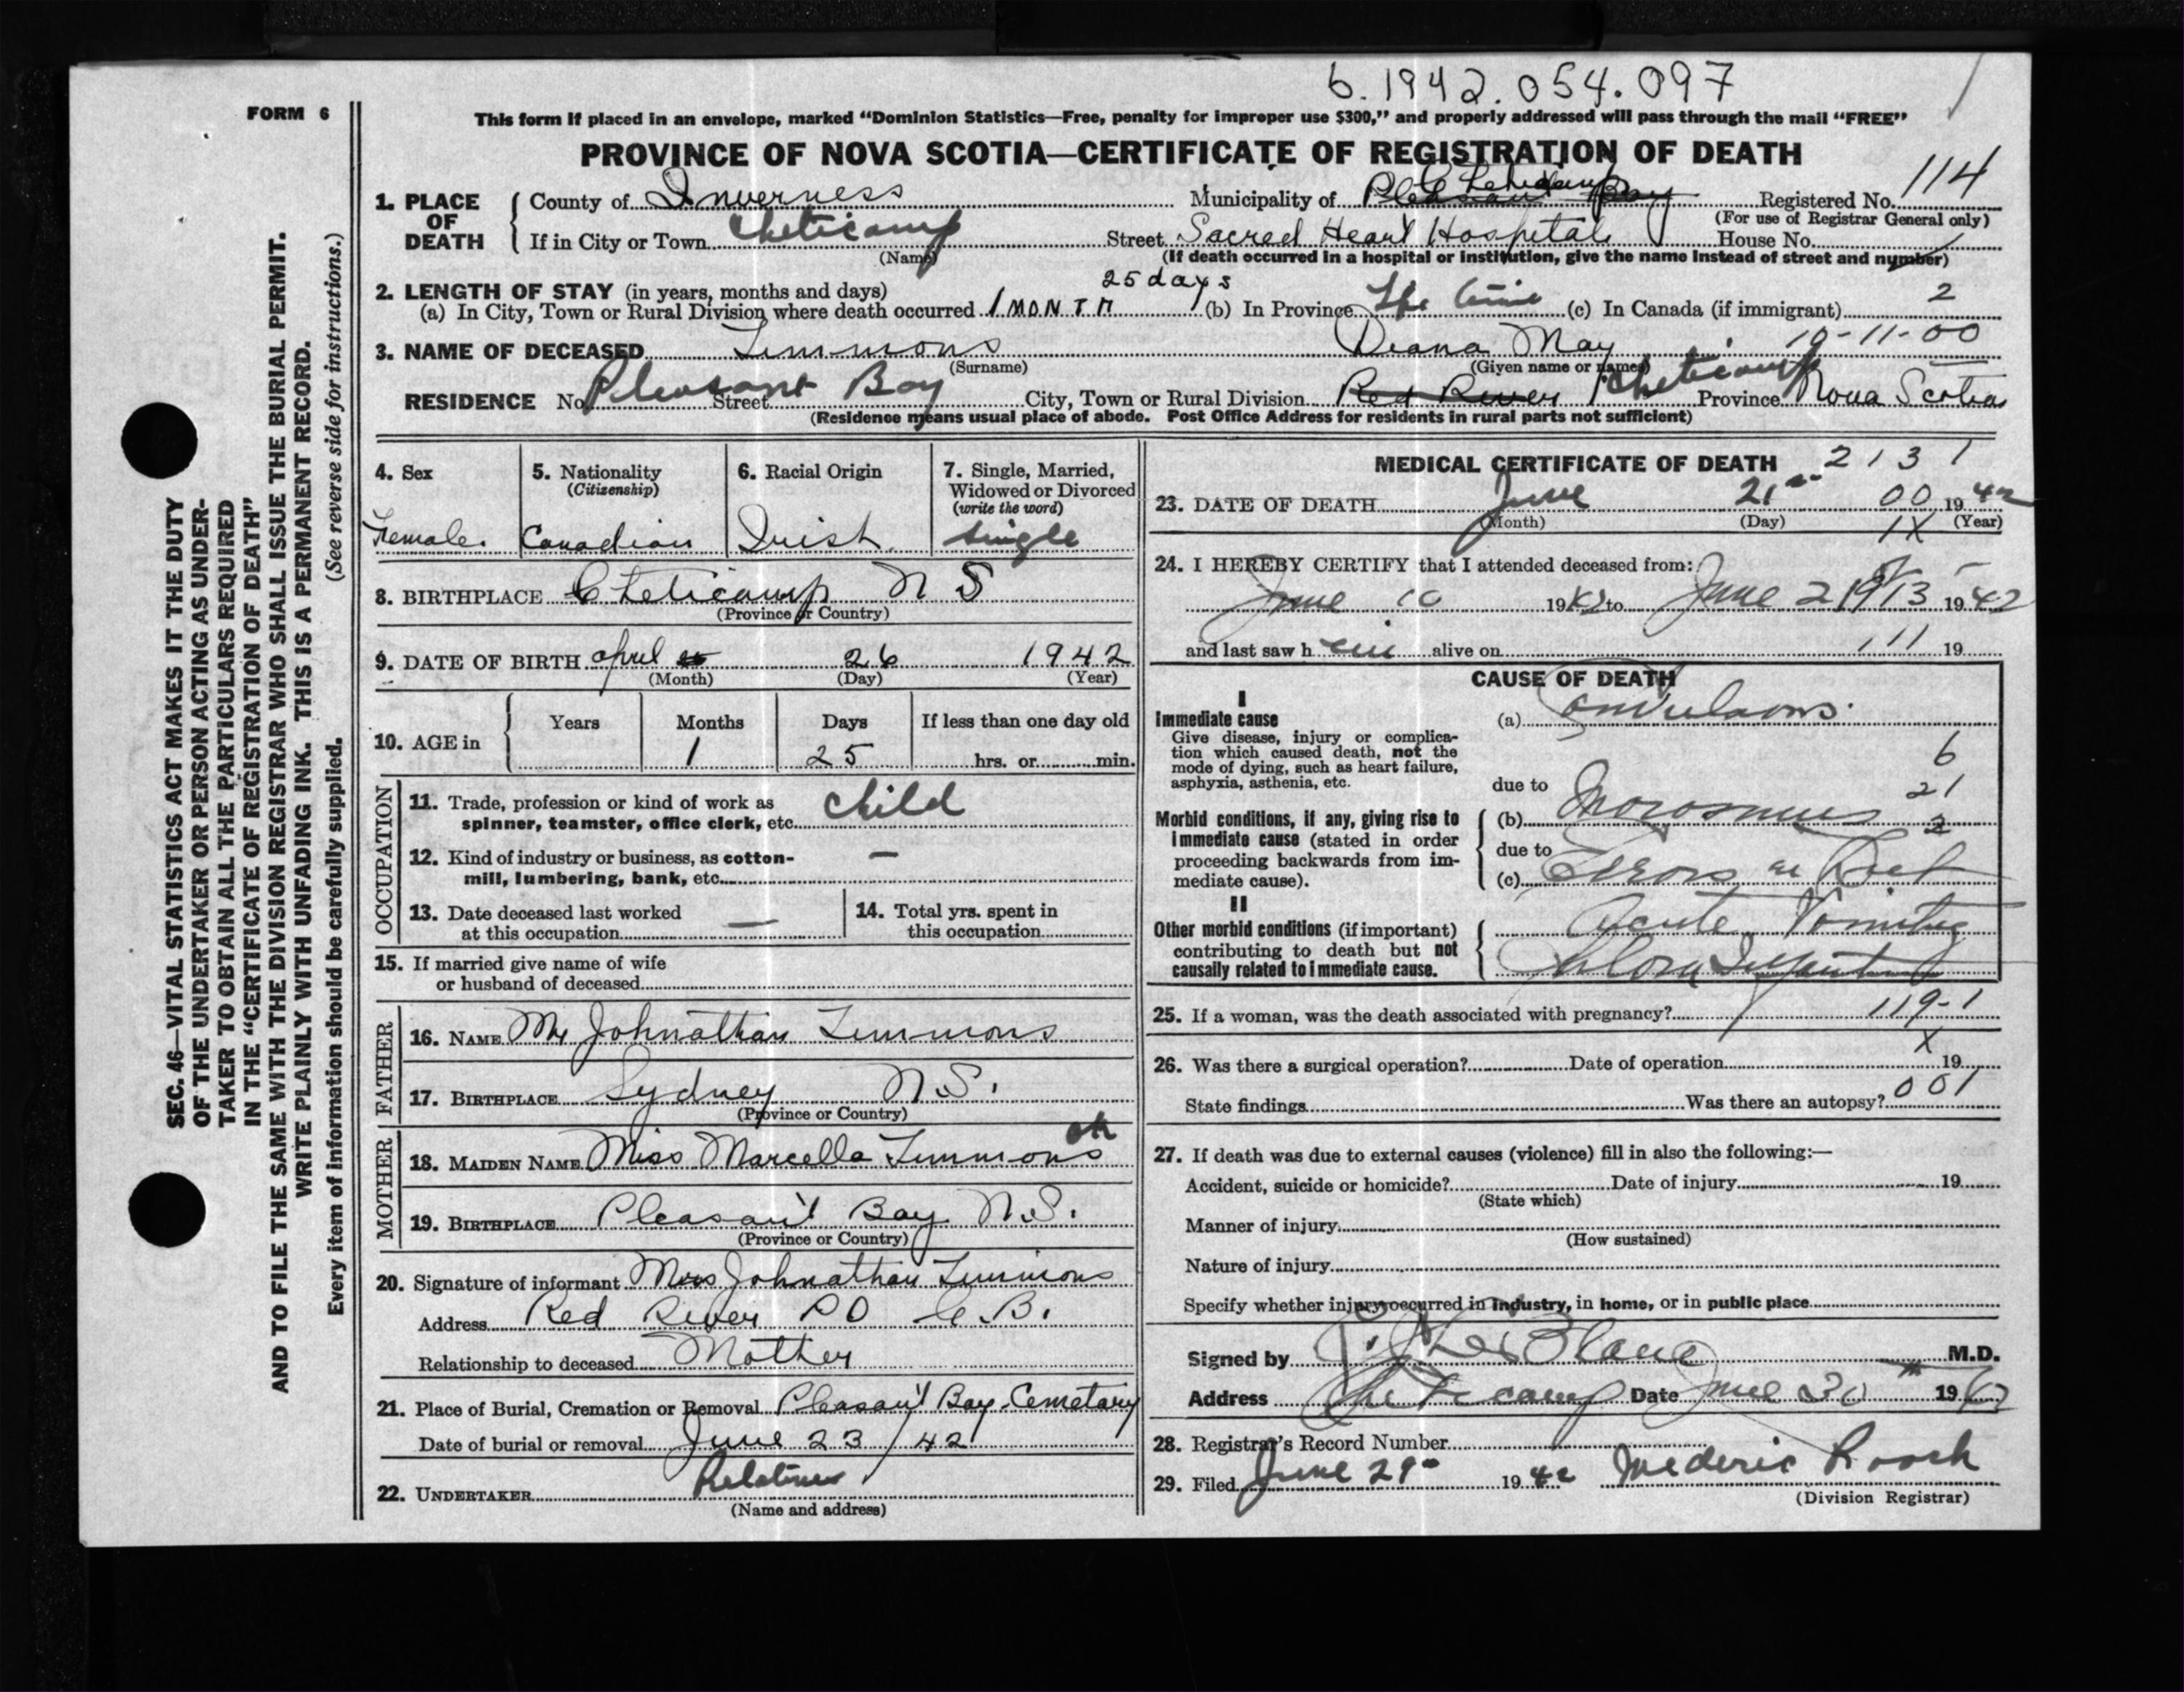 6.1942.054.097
FORM 6
This form if placed in an envelope, marked "Dominion Statistics—Free, penalty for improper use $300," and properly addressed will pass through the mail "FREE"
PROVINCE OF NOVA SCOTIA—CERTIFICATE OF REGISTRATION OF DEATH
1. PLACE OF DEATH { County of Inverness Municipality of Pleasant Bay Cheticamp Registered No. 114
(For use of Registrar General only)
If in City or Town Cheticamp Street Sacred Heart Hospital House No.
(Name) (If death occurred in a hospital or institution, give the name instead of street and number)
2. LENGTH OF STAY (in years, months and days) 25 days
(a) In City, Town or Rural Division where death occurred 1 MONTH (b) In Province (c) In Canada (if immigrant) 2
3. NAME OF DECEASED Timmons Diana May 10-11-00
(Surname) (Given name or names)
RESIDENCE No. Pleasant Bay Street City, Town or Rural Division Red River Cheticamp Province Nova Scotia
(Residence means usual place of abode. Post Office Address for residents in rural parts not sufficient)
SEC. 46—VITAL STATISTICS ACT MAKES IT THE DUTY
OF THE UNDERTAKER OR PERSON ACTING AS UNDER-
TAKER TO OBTAIN ALL THE PARTICULARS REQUIRED
IN THE "CERTIFICATE OF REGISTRATION OF DEATH"
AND TO FILE THE SAME WITH THE DIVISION REGISTRAR WHO SHALL ISSUE THE BURIAL PERMIT.
WRITE PLAINLY WITH UNFADING INK. THIS IS A PERMANENT RECORD.
Every item of information should be carefully supplied. (See reverse side for instructions.)
4. Sex 5. Nationality 6. Racial Origin 7. Single, Married,
(Citizenship) Widowed or Divorced
(write the word)
Female. Canadian Irish single
8. BIRTHPLACE Cheticamp N S
(Province or Country)
9. DATE OF BIRTH April 26 1942
(Month) (Day) (Year)
10. AGE in { Years Months Days If less than one day old
1 25 hrs. or min.
OCCUPATION
11. Trade, profession or kind of work as
spinner, teamster, office clerk, etc. child
12. Kind of industry or business, as cotton-
mill, lumbering, bank, etc. —
13. Date deceased last worked
at this occupation —
14. Total yrs. spent in
this occupation
15. If married give name of wife
or husband of deceased
FATHER
16. NAME Mr Johnathan Timmons
17. BIRTHPLACE Sydney N.S.
(Province or Country)
MOTHER
18. MAIDEN NAME Miss Marcella Timmons ok
19. BIRTHPLACE Pleasant Bay N.S.
(Province or Country)
20. Signature of informant Mrs Johnathan Timmons
Address Red River P O C.B.
Relationship to deceased Mother
21. Place of Burial, Cremation or Removal Pleasant Bay Cemetary
Date of burial or removal June 23 / 42
22. UNDERTAKER Relatives
(Name and address)
MEDICAL CERTIFICATE OF DEATH 2131
23. DATE OF DEATH June 21 00 1942
(Month) (Day) 1X (Year)
24. I HEREBY CERTIFY that I attended deceased from:
June 10 1942 to June 21 1942
and last saw h alive on 111 19
CAUSE OF DEATH
I
Immediate cause (a) Convulsions.
Give disease, injury or complica-
tion which caused death, not the
mode of dying, such as heart failure,
asphyxia, asthenia, etc.
6
due to 21
Morbid conditions, if any, giving rise to
immediate cause (stated in order
proceeding backwards from im-
mediate cause).
(b) Marasmus 2
due to
(c) Errors in Diet
II
Other morbid conditions (if important)
contributing to death but not
causally related to immediate cause.
Acute Vomiting
25. If a woman, was the death associated with pregnancy? 119-1
26. Was there a surgical operation? Date of operation X 19
State findings Was there an autopsy? 001
27. If death was due to external causes (violence) fill in also the following:—
Accident, suicide or homicide? Date of injury 19
(State which)
Manner of injury
(How sustained)
Nature of injury
Specify whether injury occurred in industry, in home, or in public place
Signed by LeBlanc M.D.
Address Cheticamp Date June 1942
28. Registrar's Record Number
29. Filed June 29 1942 Mederic Roach
(Division Registrar)